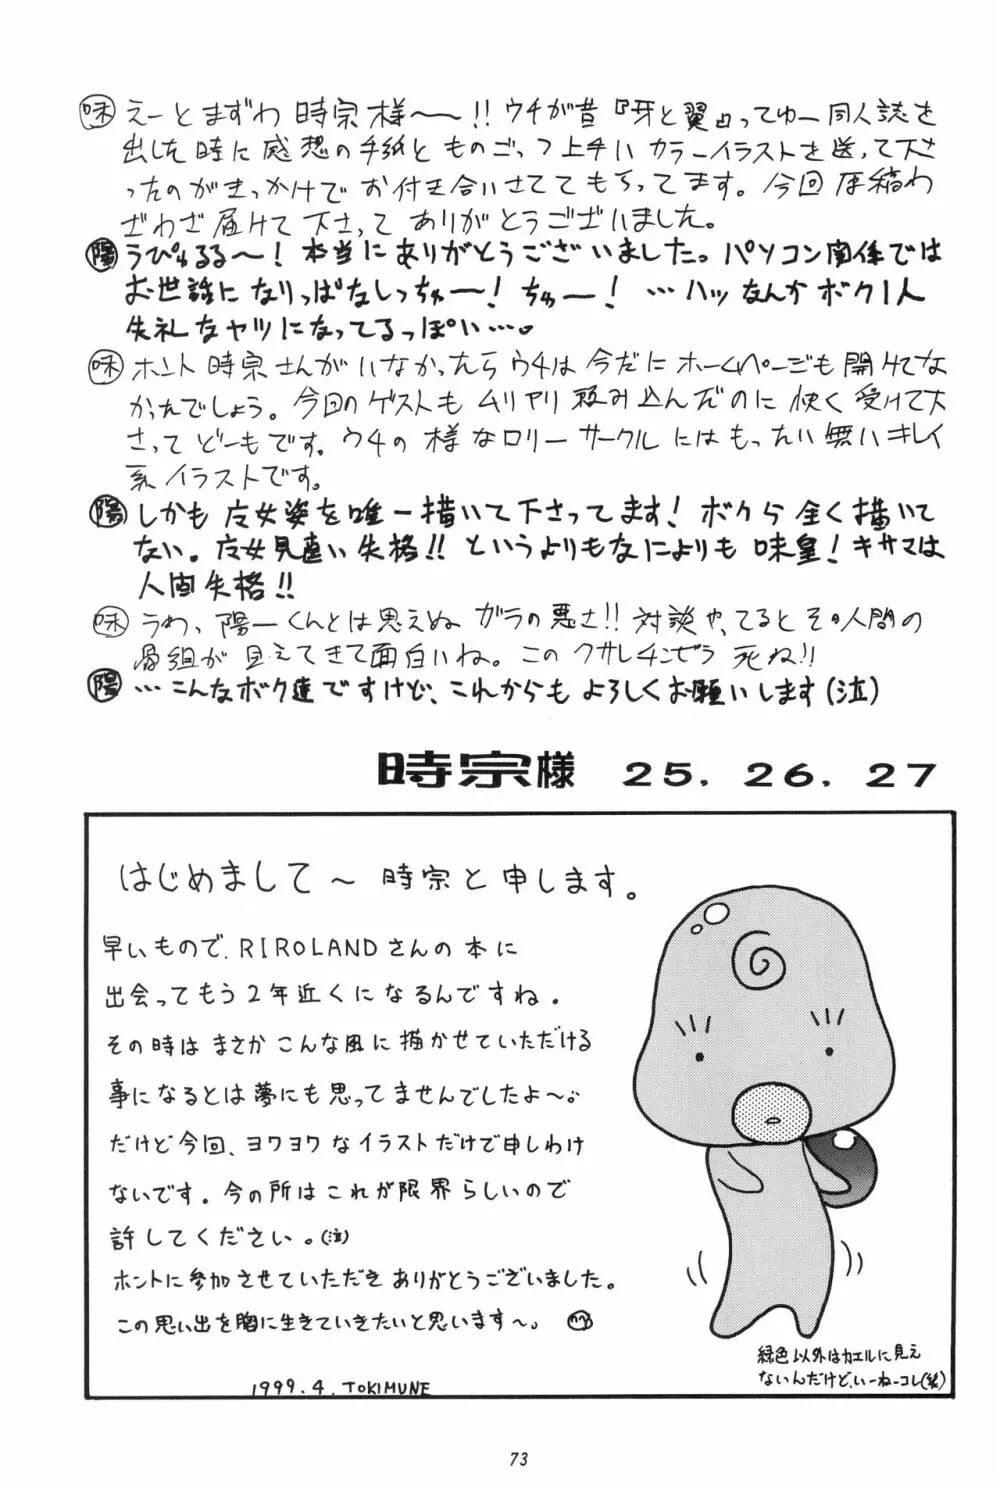 味 えーとまずわ 時宗様〜〜!! ウチが昔『牙と翼』ってゆー同人誌を
出した時に感想の手紙とものごっつ上手いカラーイラストを送って下さ
ったのがきっかけでお付き合いさせてもらってます。今回原稿わ
ざわざ届けて下さってありがとうございました。
陽 うぴゅるる〜! 本当にありがとうございました。パソコン関係では
お世話になりっぱなしっちゅー! ちゅー! …ハッなんかボク1人
失礼なヤツになってるっぽい…。
味 ホント時宗さんがいなかったらウチは今だにホームページも開けてな
かったでしょう。今回のゲストもムリヤリ頼み込んだのに快く受けて下
さってどーもです。ウチの様なロリーサークルにはもったい無いキレイ
系イラストです。
陽 しかも 女姿を唯一描いて下さってます! ボクら全く描いて
ない。 女見直い失格!! というよりもなによりも味皇! キサマは
人間失格!!
味 うわ、陽一くんとは思えぬガラの悪さ!! 対談やってるとその人間の
骨組が見えてきて面白いね。このクサレチンゼラ死ね!!
陽 …こんなボク達ですけど、これからもよろしくお願いします(泣)
時宗様 25. 26. 27
はじめまして〜 時宗と申します。
早いもので、RIROLANDさんの本に
出会ってもう2年近くになるんですね。
その時はまさかこんな風に描かせていただける
事になるとは夢にも思ってませんでしたよ〜。
だけど今回、ヨワヨワなイラストだけで申しわけ
ないです。今の所はこれが限界らしいので
許してください。(泣)
ホントに参加させていただきありがとうございました。
この思い出を胸に生きていきたいと思います〜。
1999.4. TOKIMUNE
緑色以外はカエルに見え
ないんだけど、いーねーコレ(笑)
73